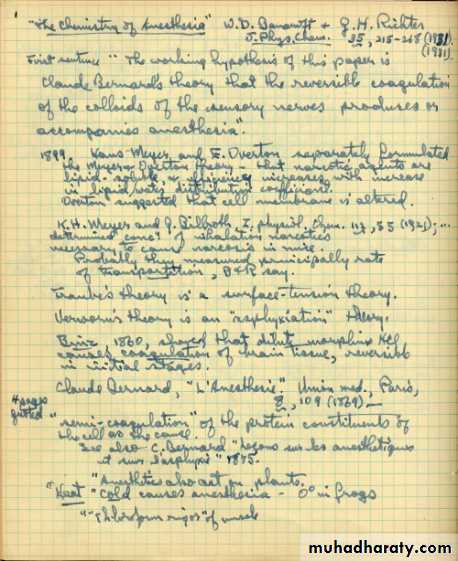 "The Chemistry of Anesthesia" W.D. Bancroft & G.H. Richter
J. Phys. Chem. 35, 215-268 (1931)
(1931)
First sentence "The working hypothesis of this paper is
Claude Bernard's theory that the reversible coagulation
of the colloids of the sensory nerves produces or
accompanies anesthesia".
1899 Hans Meyer and E. Overton separately formulated
the Meyer-Overton theory - that narcotic agents are
lipid-soluble & efficiency increases with increase
in lipid/water distribution coefficient.
Overton suggested that cell membrane is altered.
K.H. Meyer and H. Z. physiol. Chem. 112, 55 (1921); ...
determined conc. of inhalation narcotics
necessary to cause narcosis in mice.
Probably they measured principally rate
of transpartition, B&R say.
Traube's theory is a surface-tension theory.
Verworn's theory is an "asphyxiation" theory.
Binz, 1860, showed that dilute morphine HCl
causes coagulation of brain tissue, reversible
in initial stages.
Claude Bernard, "L'Anesthésie". Union med., Paris,
8, 109 (1869)
4 pages
quoted
"semi-coagulation" of the protein constituents of
the cell as the cause.
See also C. Bernard "Leçons sur les anesthétiques
et sur l'asphyxie" 1875.
"Anesthetics also act on plants.
"Heat" "Cold causes anesthesia - 0° in frogs
"Chloroform rigor" of muscle
muhadharaty.com